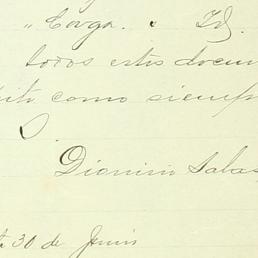 " Carga. " Id.
todos estos docum
como siemp
S.
Dionisio Salas
30 de Junio